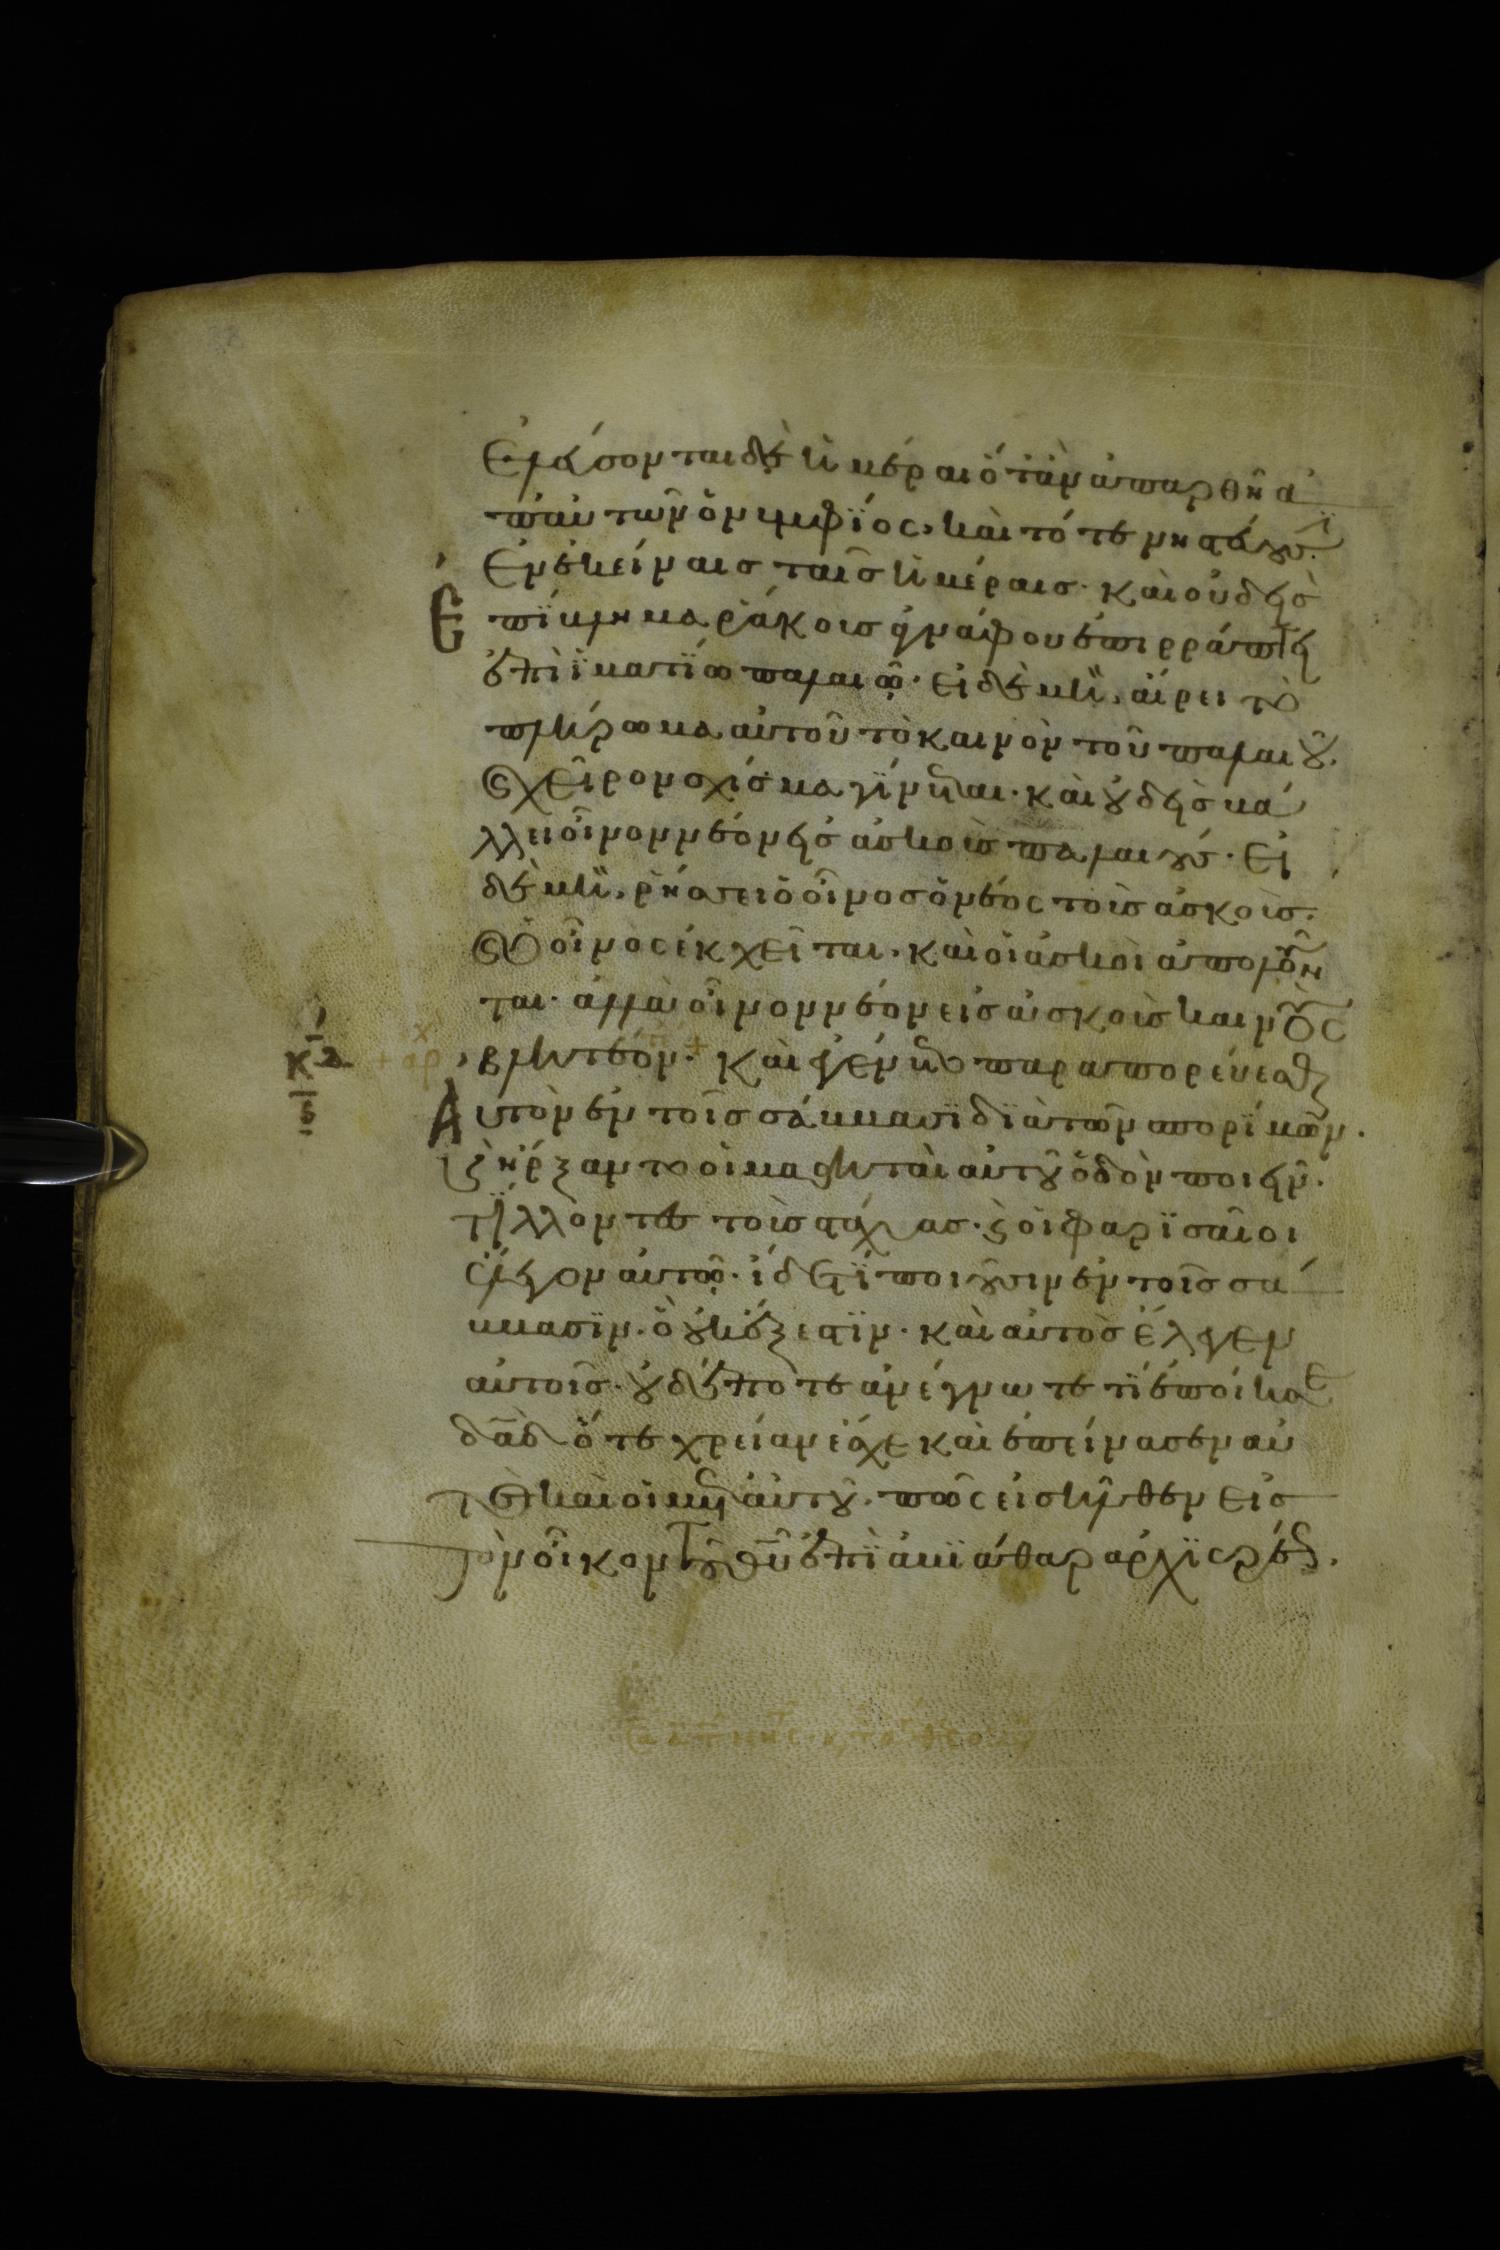 ἐλεύσονται δὲ ἡμέραι ὅταν ἀπαρθῆ ἀ
π' αὐτῶν ὁ νυμφίος, καὶ τότε νηστεύσ
ἐν ἐκείναις ταῖς ἡμέραις· καὶ οὐδεὶς
ἐπίβλημα ῥάκους ἀγνάφου ἐπιρράπτει
ἐπὶ ἱματίω παλαιῶ· εἰ δὲ μὴ, αἴρει τὸ
πλήρωμα αὐτοῦ τὸ καινὸν τοῦ παλαιοῦ.
καὶ χεῖρον σχίσμα γίνεται· καὶ οὐδεὶς βά
λλει οἶνον νέον εἰς ἀσκοὺς παλαιούς· εἰ
δὲ μὴ, ῥήσσει ὁ οἶνος ὁ νέος τοὺς ἀσκούς.
καὶ ὁ οἶνος ἐκχεῖται· καὶ οἱ ἀσκοὶ ἀπολοῦν
ται· ἀλλὰ οἶνον νέον εἰς ἀσκοὺς καινοὺς
κδ ς αρχ βλητέον· καὶ ἐγένετο παραπορεύεσθαι
αὐτὸν ἐν τοῖς σάββασι διὰ τῶν σπορίμων.
καὶ ἤρξαντο οἱ μαθηταὶ αὐτοῦ ὁδὸν ποιεῖν.
τίλλοντες τοὺς στάχυας· καὶ οἱ φαρισαῖοι
ἔλεγον αὐτῶ· ἴδε τί ποιοῦσιν ἐν τοῖς σά
ββασιν· ὃ οὐκ ἔξεστιν· καὶ αὐτὸς ἔλεγεν
αὐτοῖς· οὐδέποτε ἀνέγνωτε τί ἐποίησε
δαδ ὅτε χρείαν ἔσχε καὶ ἐπείνασεν αὐ
τὸς καὶ οἱ μετ' αὐτοῦ· πῶς εἰσῆλθεν εἰς
τὸν οἶκον τοῦ θυ ἐπὶ ἀβιάθαρ ἀρχιερέως.